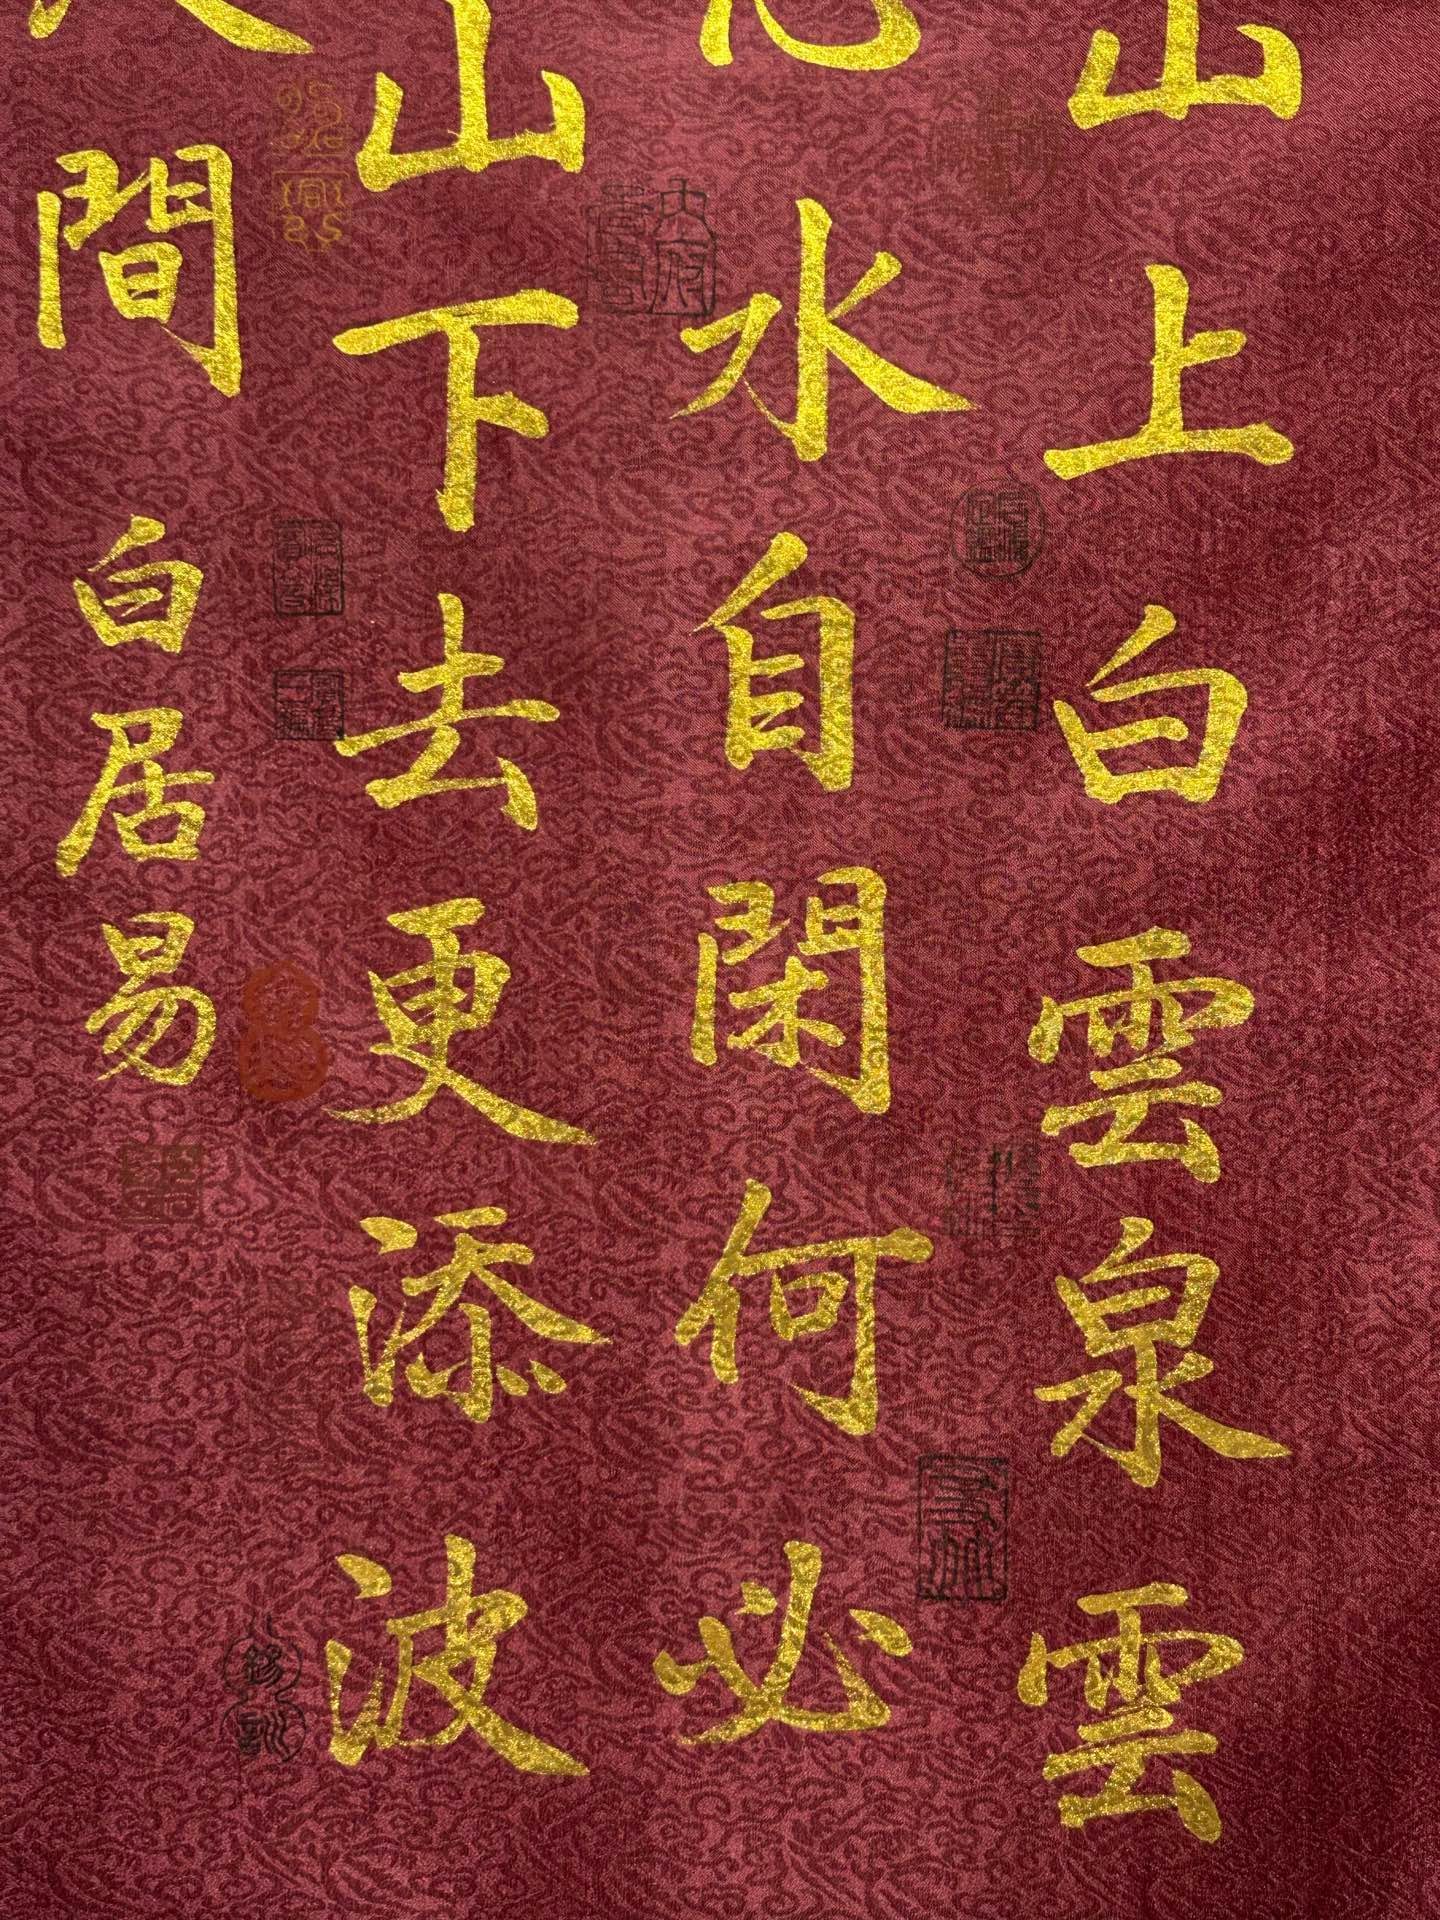 山上白雲泉雲
心水自閑何必
山下去更添波
人間
白居易